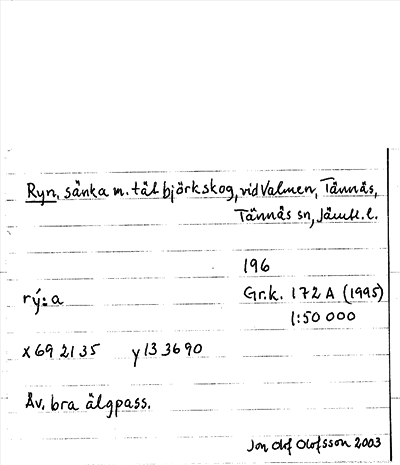 Ryn, sänka m. tät björkskog, vid Valmen, Tännäs,
Tännäs sn, Jämtl. l.
196
rý:a
Gr.k. 172 A (1995)
1:50 000
x 69 21 35 y 13 36 90
Äv. bra älgpass.
Jon Olof Olofsson 2003